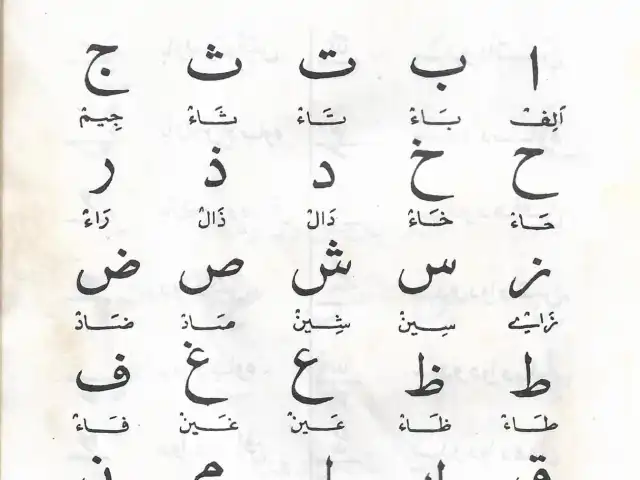 ا ب ت ث ج
اَلِفْ بَاءْ تَاءْ ثَاءْ جِيمْ
ح خ د ذ ر
حَاءْ خَاءْ دَالْ ذَالْ رَاءْ
ز س ش ص ض
زَاىْ سِينْ شِينْ صَادْ ضَادْ
ط ظ ع غ ف
طَاءْ ظَاءْ عَينْ غَينْ فَاءْ
ق ك ل م ن